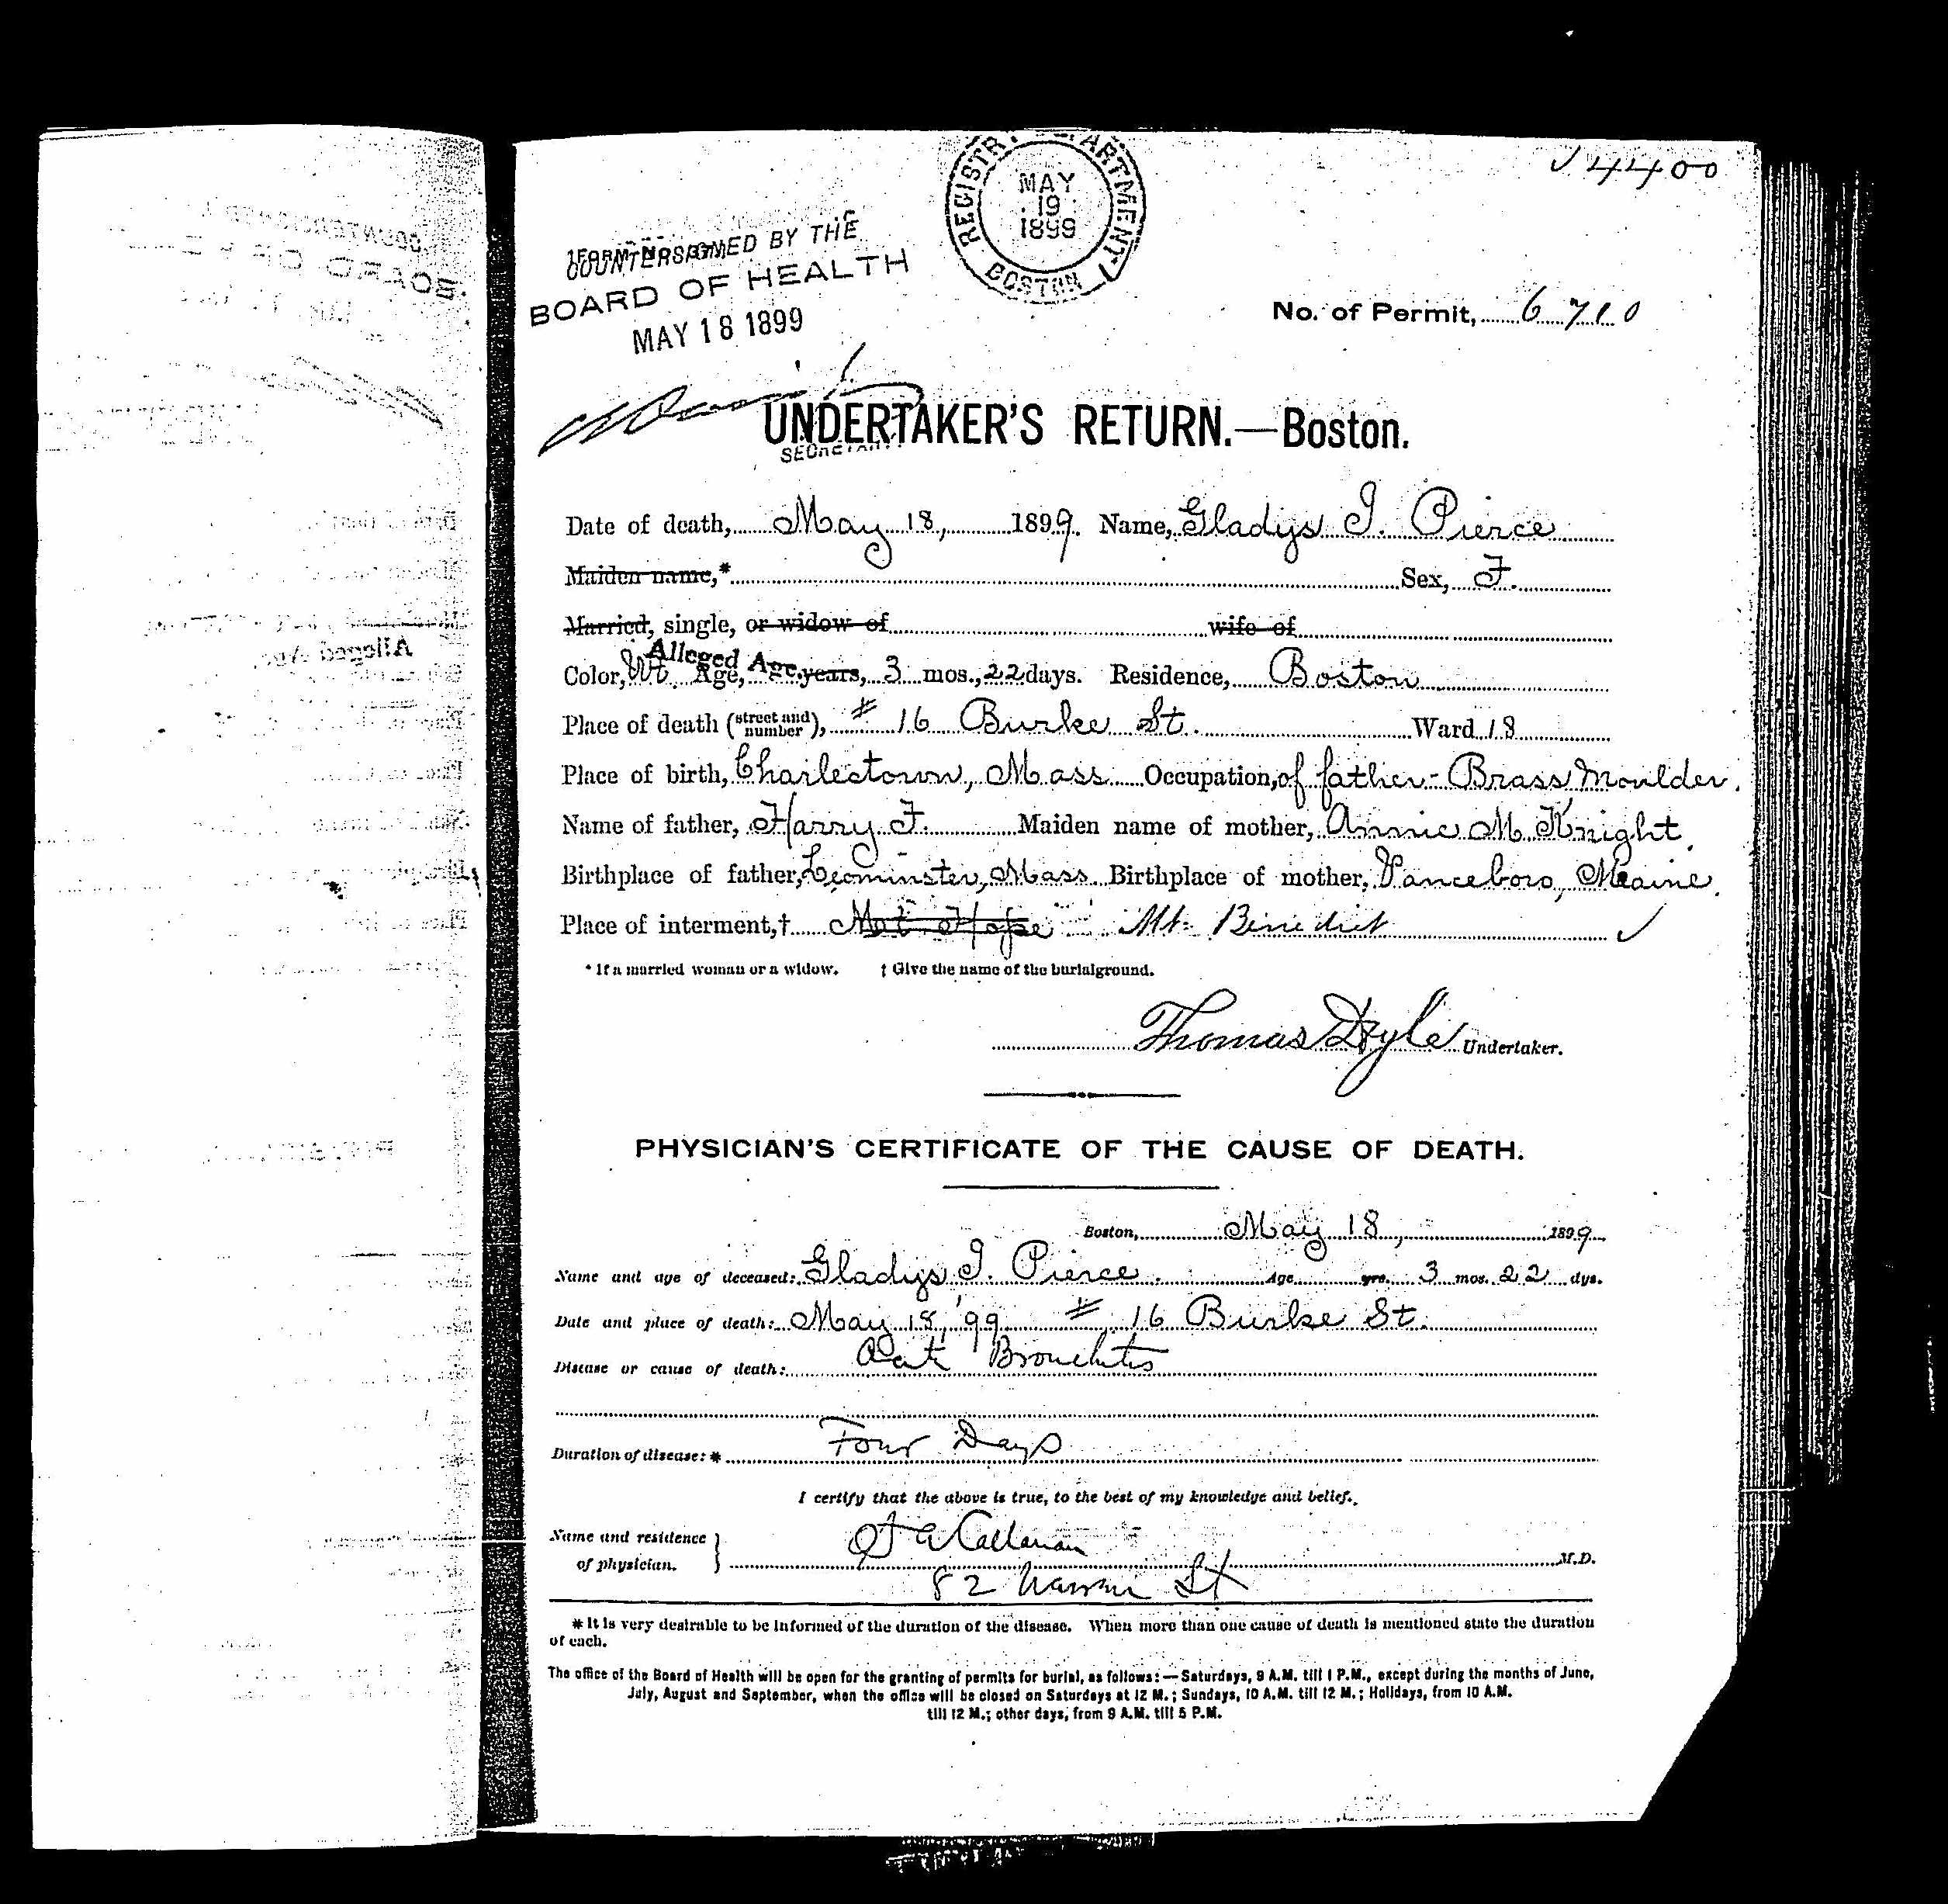 4400
REGISTR ARTMENT BOSTON
MAY
19
1899
COUNTERSIGNED BY THE
BOARD OF HEALTH
MAY 18 1899
No. of Permit, 6710
UNDERTAKER'S RETURN.—Boston.
Date of death, May 18, 1899. Name, Gladys I. Pierce
Maiden name,* Sex, F.
Married, single, or widow of wife of
Alleged Age
Color, Wt. Age, years, 3 mos., 22 days. Residence, Boston
Place of death (street and number), # 16 Burke St. Ward 18
Place of birth, Charlestown, Mass Occupation, of father - Brass Moulder.
Name of father, Harry F. Maiden name of mother, Annie M. Knight.
Birthplace of father, Leominster, Mass. Birthplace of mother, Vanceboro, Maine.
Place of interment,† Mt Hope Mt. Benedict
* If a married woman or a widow. † Give the name of the burialground.
Thomas Doyle Undertaker.
PHYSICIAN'S CERTIFICATE OF THE CAUSE OF DEATH.
Boston, May 18, 1899
Name and age of deceased: Gladys I. Pierce. Age yrs. 3 mos. 22 dys.
Date and place of death: May 18, '99 # 16 Burke St.
Disease or cause of death: Bronchitis
Duration of disease: * Four Days
I certify that the above is true, to the best of my knowledge and belief.
Name and residence of physician. Callanan M.D.
82 Warren St
* It is very desirable to be informed of the duration of the disease. When more than one cause of death is mentioned state the duration
of each.
The office of the Board of Health will be open for the granting of permits for burial, as follows:— Saturdays, 9 A.M. till 1 P.M., except during the months of June,
July, August and September, when the office will be closed on Saturdays at 12 M.; Sundays, 10 A.M. till 12 M.; Holidays, from 10 A.M.
till 12 M.; other days, from 9 A.M. till 5 P.M.